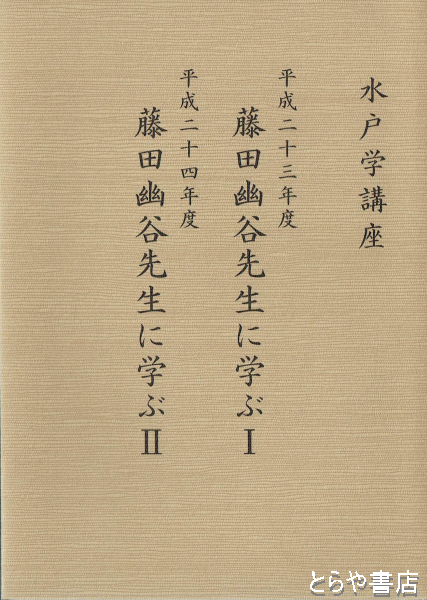 水戸学講座
平成二十三年度
藤田幽谷先生に学ぶⅠ
平成二十四年度
藤田幽谷先生に学ぶⅡ
とらや書店